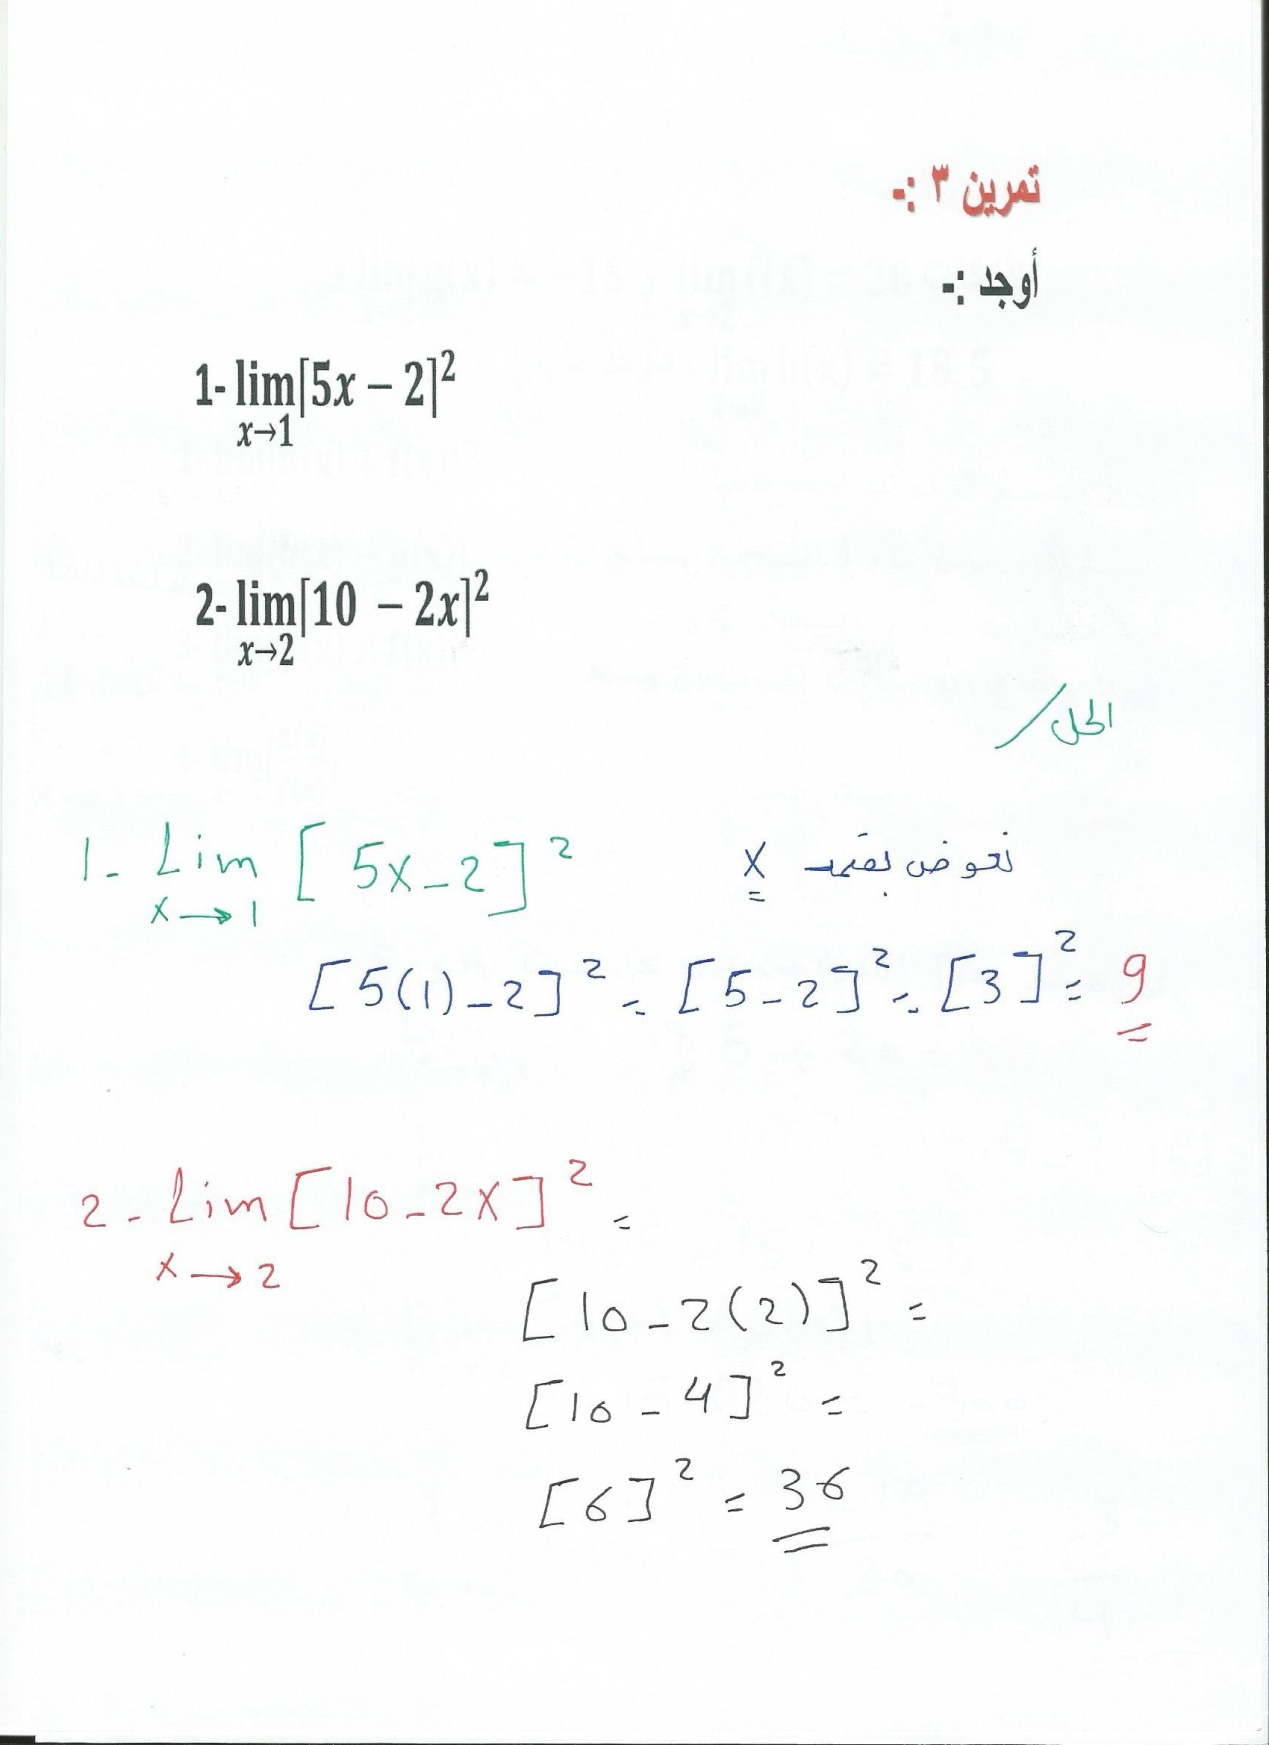 تمرين ٣ :-
أوجد :-
1- lim[5x – 2]²
x→1
2- lim[10 – 2x]²
x→2
الحل/
1- Lim [ 5x-2]² نعوض بقيمة x
x→1
[5(1)-2]² = [5-2]² = [3]² = 9
2- Lim [10-2x]² =
x→2
[10-2(2)]² =
[10-4]² =
[6]² = 36